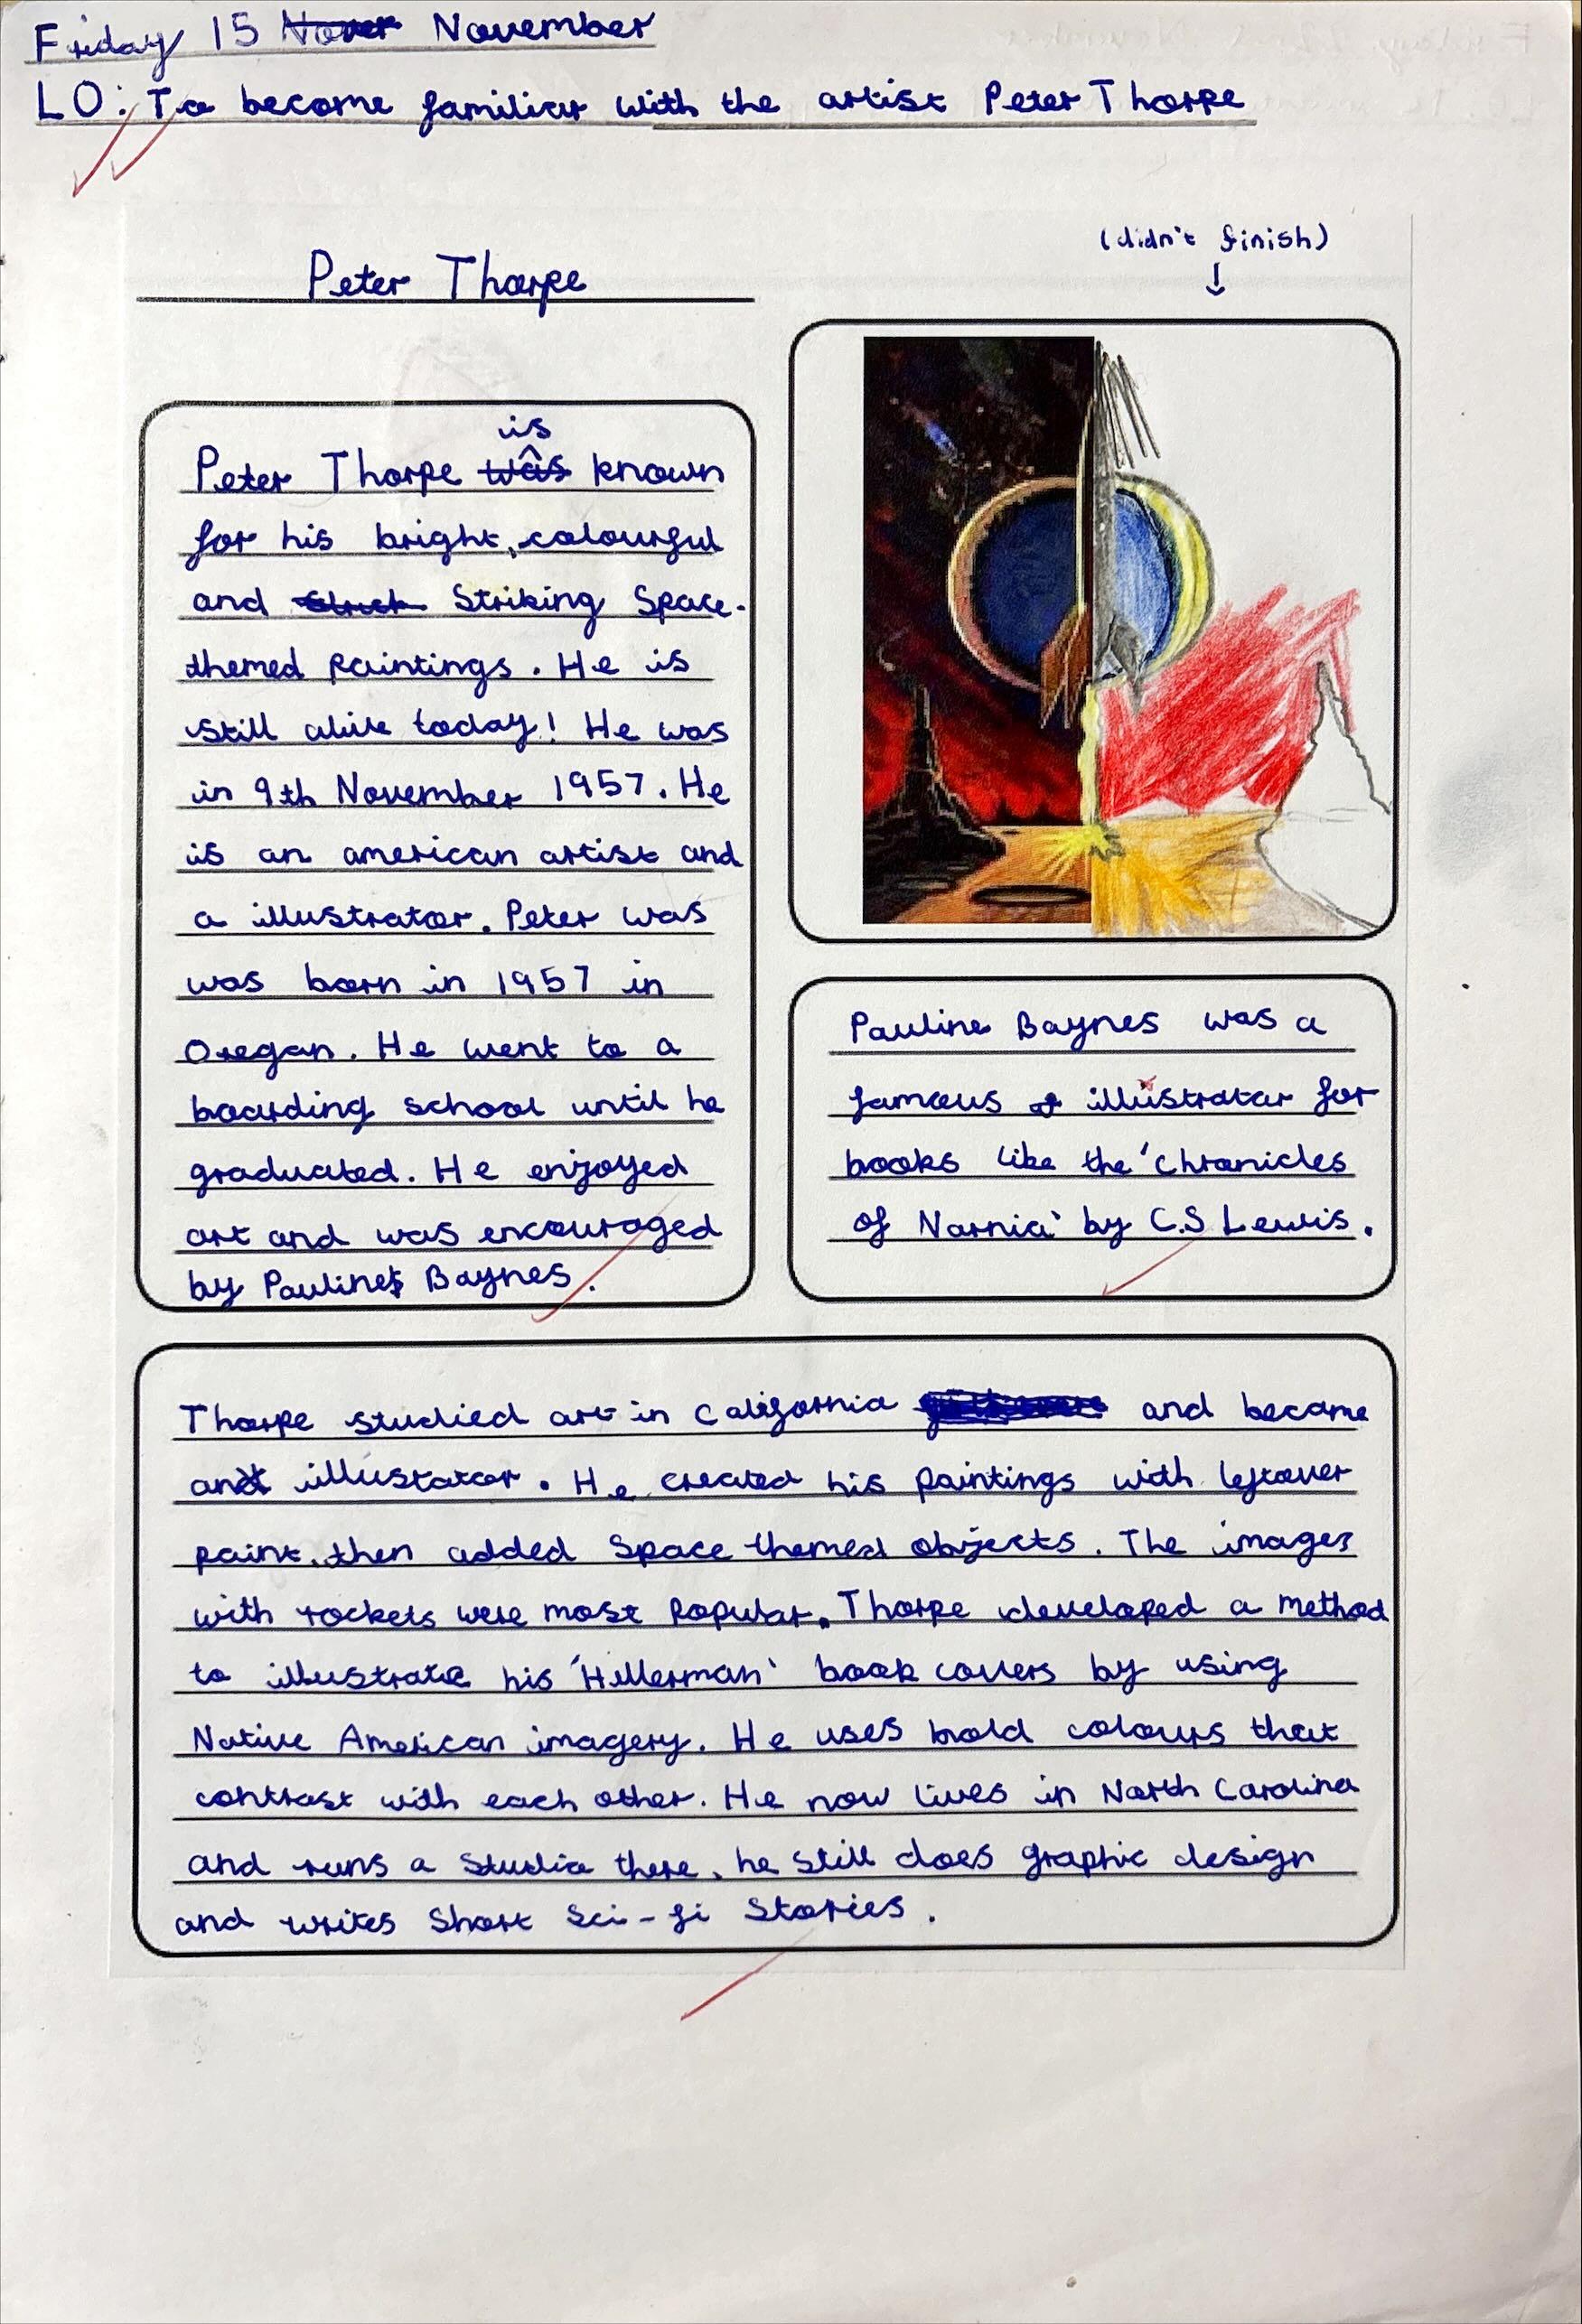 Friday 15 November
LO: To become familiar with the artist Peter Thorpe
(didn't finish)
Peter Thorpe
is
Peter Thorpe was known
for his bright, colourful
and Striking Space-
themed paintings. He is
still alive today! He was
in 9th November 1957. He
is an american artist and
a illustrator. Peter was
was born in 1957 in
Oregan. He went to a
boarding school until he
graduated. He enjoyed
art and was encouraged
by Pauline Baynes.
Pauline Baynes was a
famous illustrator for
books like the 'Chronicles
of Narnia' by C.S Lewis.
Thorpe studied art in California and became
an illustator. He created his paintings with leftover
paint, then added Space themed objects. The images
with rockets were most popular. Thorpe developed a method
to illustrate his 'Hillerman' book covers by using
Native American imagery. He uses bold colours that
contrast with each other. He now lives in North Carolina
and runs a studio there, he still does graphic design
and writes Short Sci-fi Stories.